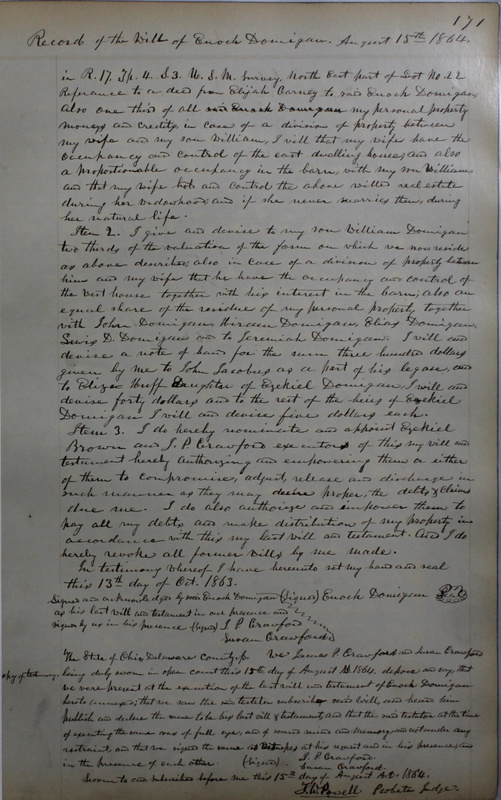 171
Record of the Will of Enoch Domigan. August 15th 1864.
in R. 17. Tp. 4. S. 3. U. S. M. Survey, North East part of Lot No. 22
Referance to a deed from Elijah Carney to said Enoch Domigan
Also one third of all said Enoch Domigan my personal property
moneys and credits, in case of a division of property between
my wife and my son William, I will that my wife have the
occupancy and control of the east dwelling houses, and also
a proportionable occupancy in the barn, with my son William
and that my wife hold and control the above willed real estate
during her widowhood, and if she never marries then during
her natural life.
Item 2. I give and devise to my son William Domigan
two thirds of the valuation of the farm on which we now reside
as above described, also in case of a division of property between
him and my wife that he have the occupancy and control of
the west house together with his interest in the barn, also an
equal share of the residue of my personal property together
with John Domigan, Hiram Domigan, Elias Domigan,
Lewis D. Domigan and to Jeremiah Domigan. I will and
devise a note of hand for the sum three hundred dollars
given by me to John Jacobus as a part of his legase, and
to Eliza Huff Daughter of Ezekiel Domigan I will and
devise forty dollars and to the rest of the heirs of Ezekiel
Domigan I will and devise five dollars each.
Item 3. I do hereby nominate and appoint Ezekiel
Brown and J. P. Crawford executors of this my will and
testament hereby authorizing and empowering them or either
of them to compromise, adjust, release and discharge in
such manner as they may desire proper, the debts & claims
due me. I do also authorize and empower them to
pay all my debts and make distribution of my property in
accordance with this my last will and testament. And I do
hereby revoke all former wills by me made.
In testimony whereof I have hereunto set my hand and seal
this 13th day of Oct. 1863.
Signed and acknowledged by said Enoch Domigan (Signed) Enoch Domigan Seal
as his last will and testament in our presence and
signed by us in his presence (Signed) J. P. Crawford
Susan Crawford
The State of Ohio Delaware County, ss. We James P. Crawford and Susan Crawford
being duly sworn in open court this 15th day of August AD 1864, depose and say, that
we were present at the execution of the last will and testament of Enoch Domigan
hereto annexed, that we saw the said testator subscribe said will, and heard him
publish and declare the same to be his last will & testament, and that the said testator at the time
of executing the same was of full age, and of sound mind and memory, and not under any
restraint, and that we signed the same as witnesses at his request and in his presence, and
in the presence of each other. (Signed) J. P. Crawford
Susan Crawford.
Sworn to and subscribed before me this 15th day of August A.D. 1864.
T. W. Powell Probate Judge.